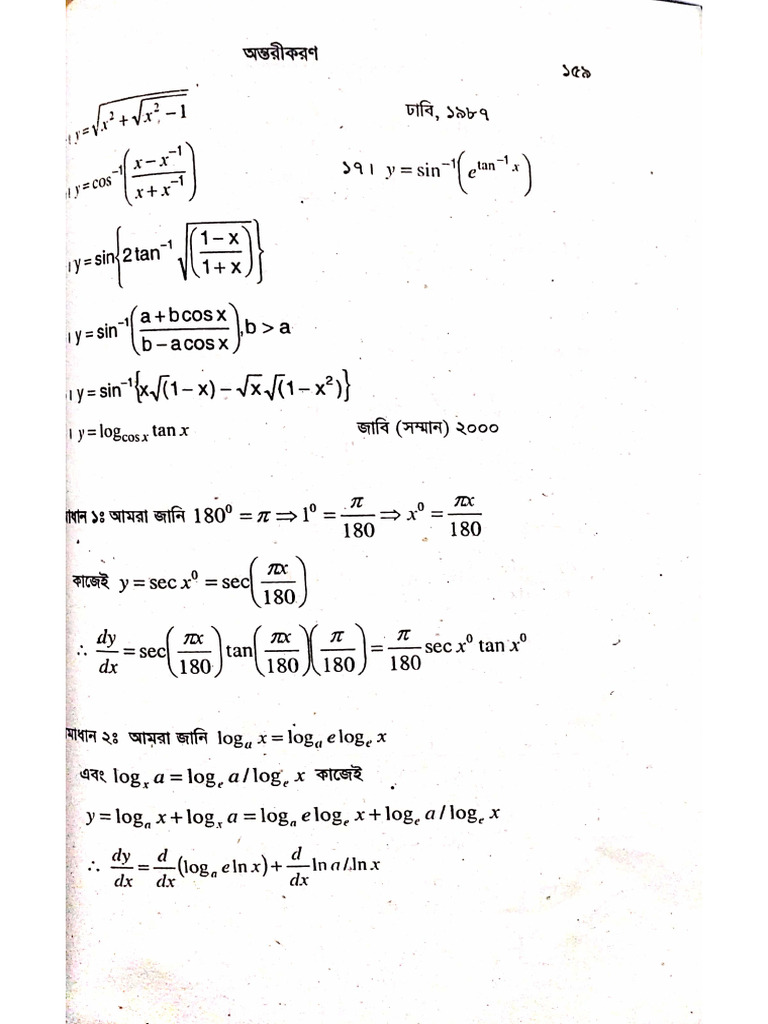 অন্তরীকরণ
১৫৯
। y = √(x² + √(x² − 1)) ঢাবি, ১৯৮৭
। y = cos⁻¹((x − x⁻¹)/(x + x⁻¹)) ১৭। y = sin⁻¹(e^(tan⁻¹ x))
। y = sin{2 tan⁻¹ √((1 − x)/(1 + x))}
। y = sin⁻¹((a + b cos x)/(b − a cos x)), b > a
। y = sin⁻¹{x√(1 − x) − √x√(1 − x²)}
। y = log_cos x tan x জাবি (সম্মান) ২০০০
মাধান ১ঃ আমরা জানি 180⁰ = π ⇒ 1⁰ = π/180 ⇒ x⁰ = πx/180
কাজেই y = sec x⁰ = sec(πx/180)
∴ dy/dx = sec(πx/180) tan(πx/180)(π/180) = π/180 sec x⁰ tan x⁰
মাধান ২ঃ আমরা জানি logₐ x = logₐ e logₑ x
এবং logₓ a = logₑ a / logₑ x কাজেই
y = logₐ x + logₓ a = logₐ e logₑ x + logₑ a / logₑ x
∴ dy/dx = d/dx (logₐ e ln x) + d/dx ln a /. ln x